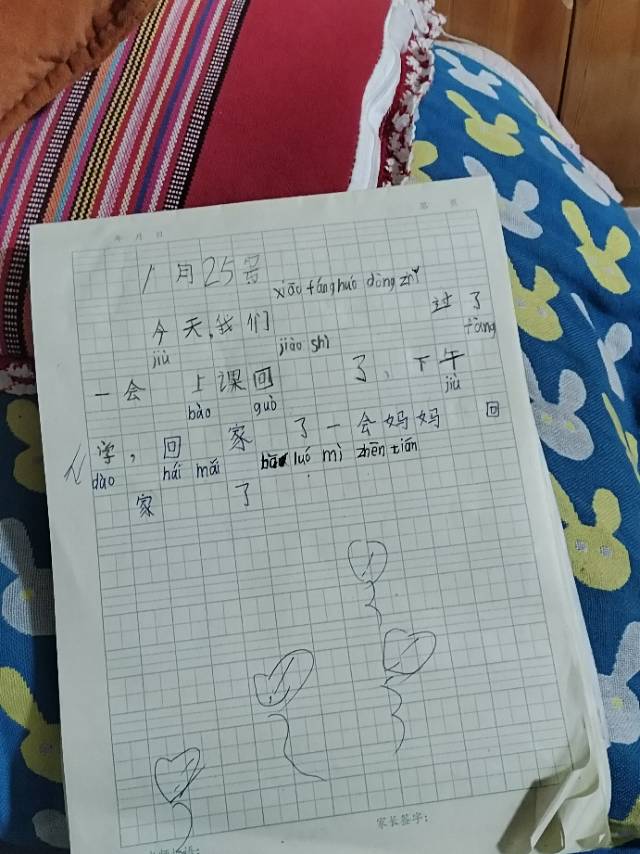 年 月 日 第 页
1月25号
xiāo fáng huó dòng
今天,我们 过了
jiù jiào shì fàng
一会 上课回 了、下午
bào guò jiù
学,回 家 了一会妈妈 回
dào hái mǎi luó mì zhēn tián
家 了
家长签字: